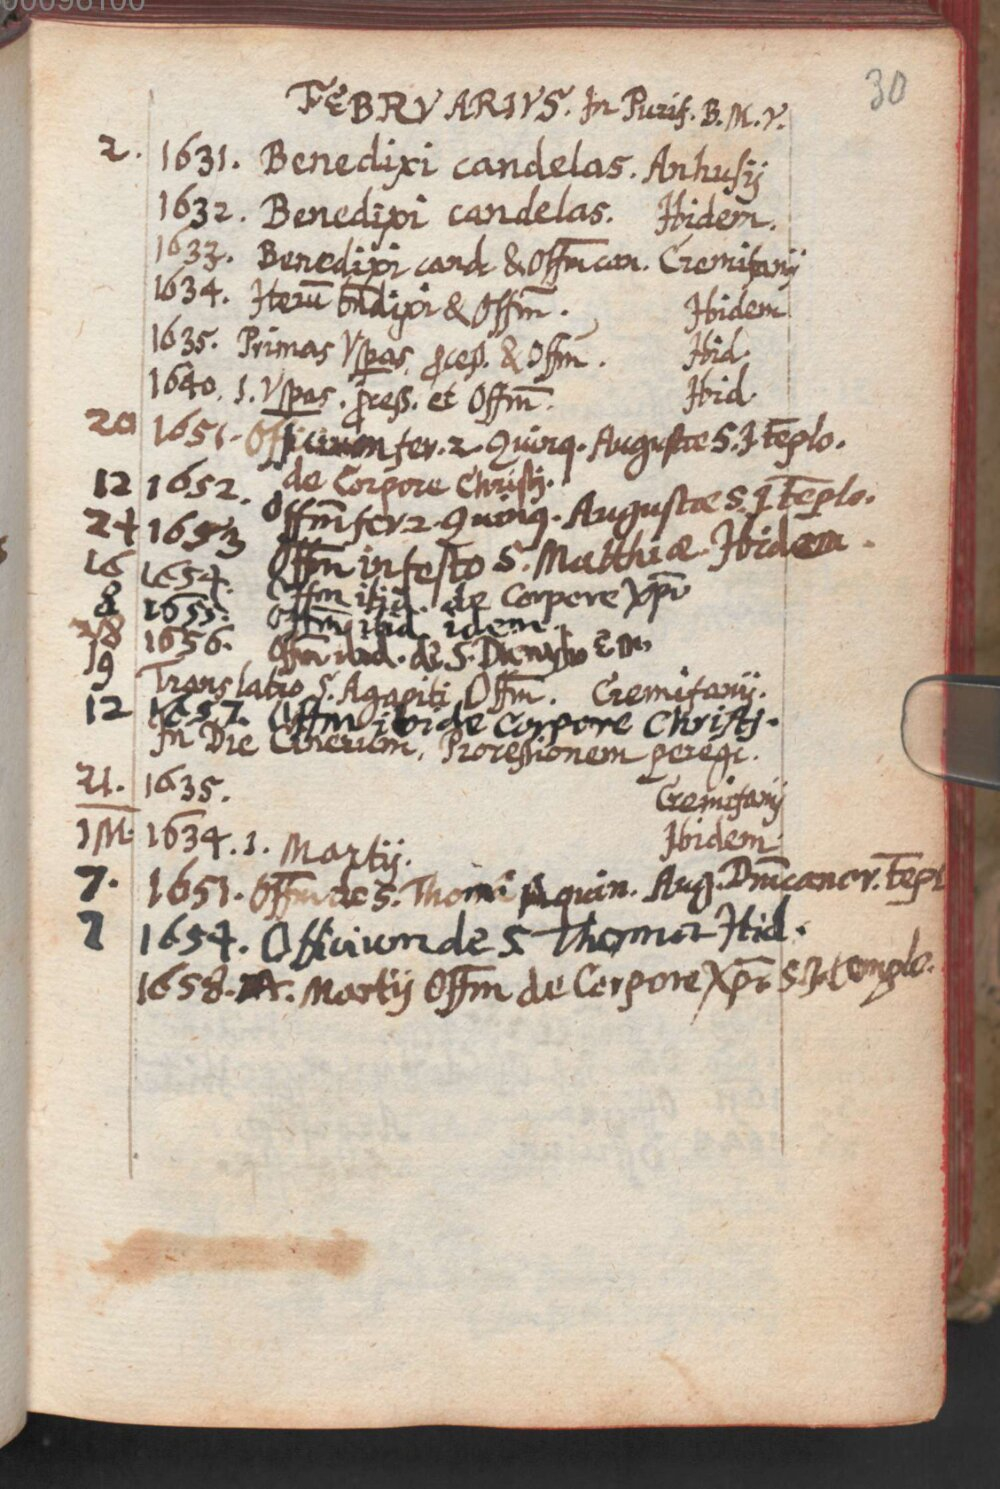 00096100
30
FEBRVARIVS. In Purif. B. M. V.
2. 1631. Benedixi candelas. Anhusij
1632. Benedixi candelas. Ibidem.
1633. Benedixi cand. & Offm̄ can. Cremifanij
1634. Iterū bn̄dixi & Offm̄. Ibidem
1635. Primas Vspas, pcess. & Offm̄. Ibid.
1640. 1. Vspas. pcess. et Offm̄. Ibid.
20 1651. Officium fer. 2. Quinq. Augustae S. J. Tēplo.
de Corpore Christi.
12 1652. Offm̄ fer 2. Quinq. Augustae S. J Tēplo.
24 1653 Offm̄ in festo S. Matthiae. Ibidem.
16 1654. Offm̄ ibid. de Corpore Xp̄i
8 1655. Offm̄ ibid. idem.
1656. Offm̄ ibid. de S. E. M.
19 Translatio S. Agapiti Offm̄. Cremifanij.
12 1657. Offm̄ ibi de Corpore Christi.
In Die Cinerum. Processionem peregi.
21. 1635. Cremifanij
1 M. 1634. 1. Martij. Ibidem
7. 1651. Offm̄ de S. Thom Aquin. Aug. Dm̄canor. Tēpl
7 1654. Officium de S Thoma Ibid.
1658. Martij Offm̄ de Corpore Xp̄i S. J. templo.